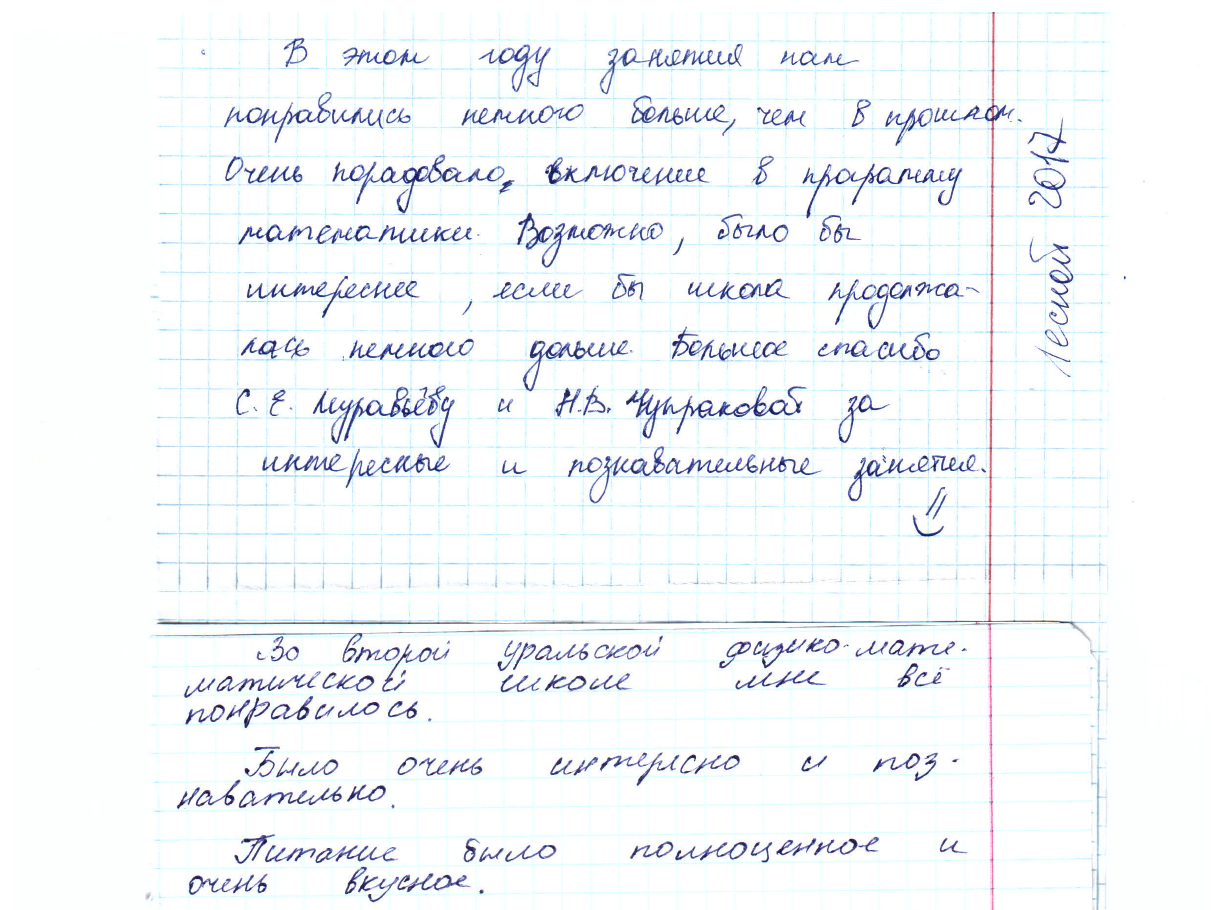 В этом году занятия нам
понравились немного больше, чем в прошлом.
Очень порадовало включение в програмту
математики. Возможно, было бы
интереснее, если бы школа продолжа-
лась немного дольше. Большое спасибо
С. Е. Муравьёву и Н.В. Чупраковой за
интересные и познавательные занятия.
Лесной 2017
Во второй уральской физико-мате-
матической школе мне всё
понравилось.
Было очень интересно и поз-
навательно.
Питание было полноценное и
очень вкусное.